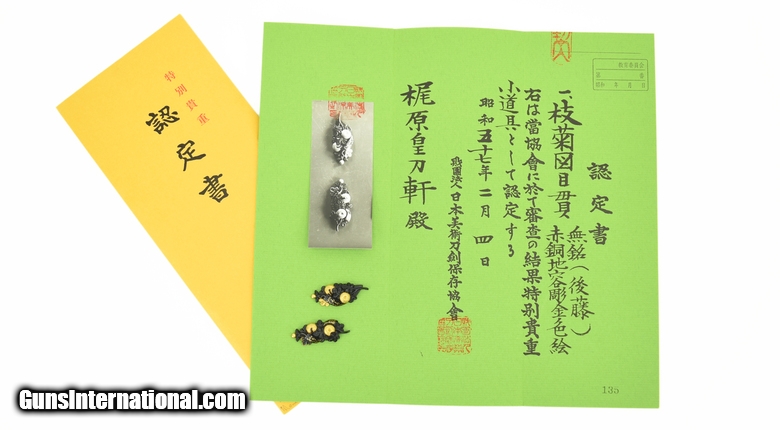 認定書
一、枝菊図目貫
無銘(後藤)
赤銅地容彫金色絵
右は當協會に於て審査の結果特別貴重
小道具として認定する
昭和五十七年二月四日
財團法人日本美術刀剣保存協會
梶原皇刀軒殿
135
特別貴重
認定書
GunsInternational.com